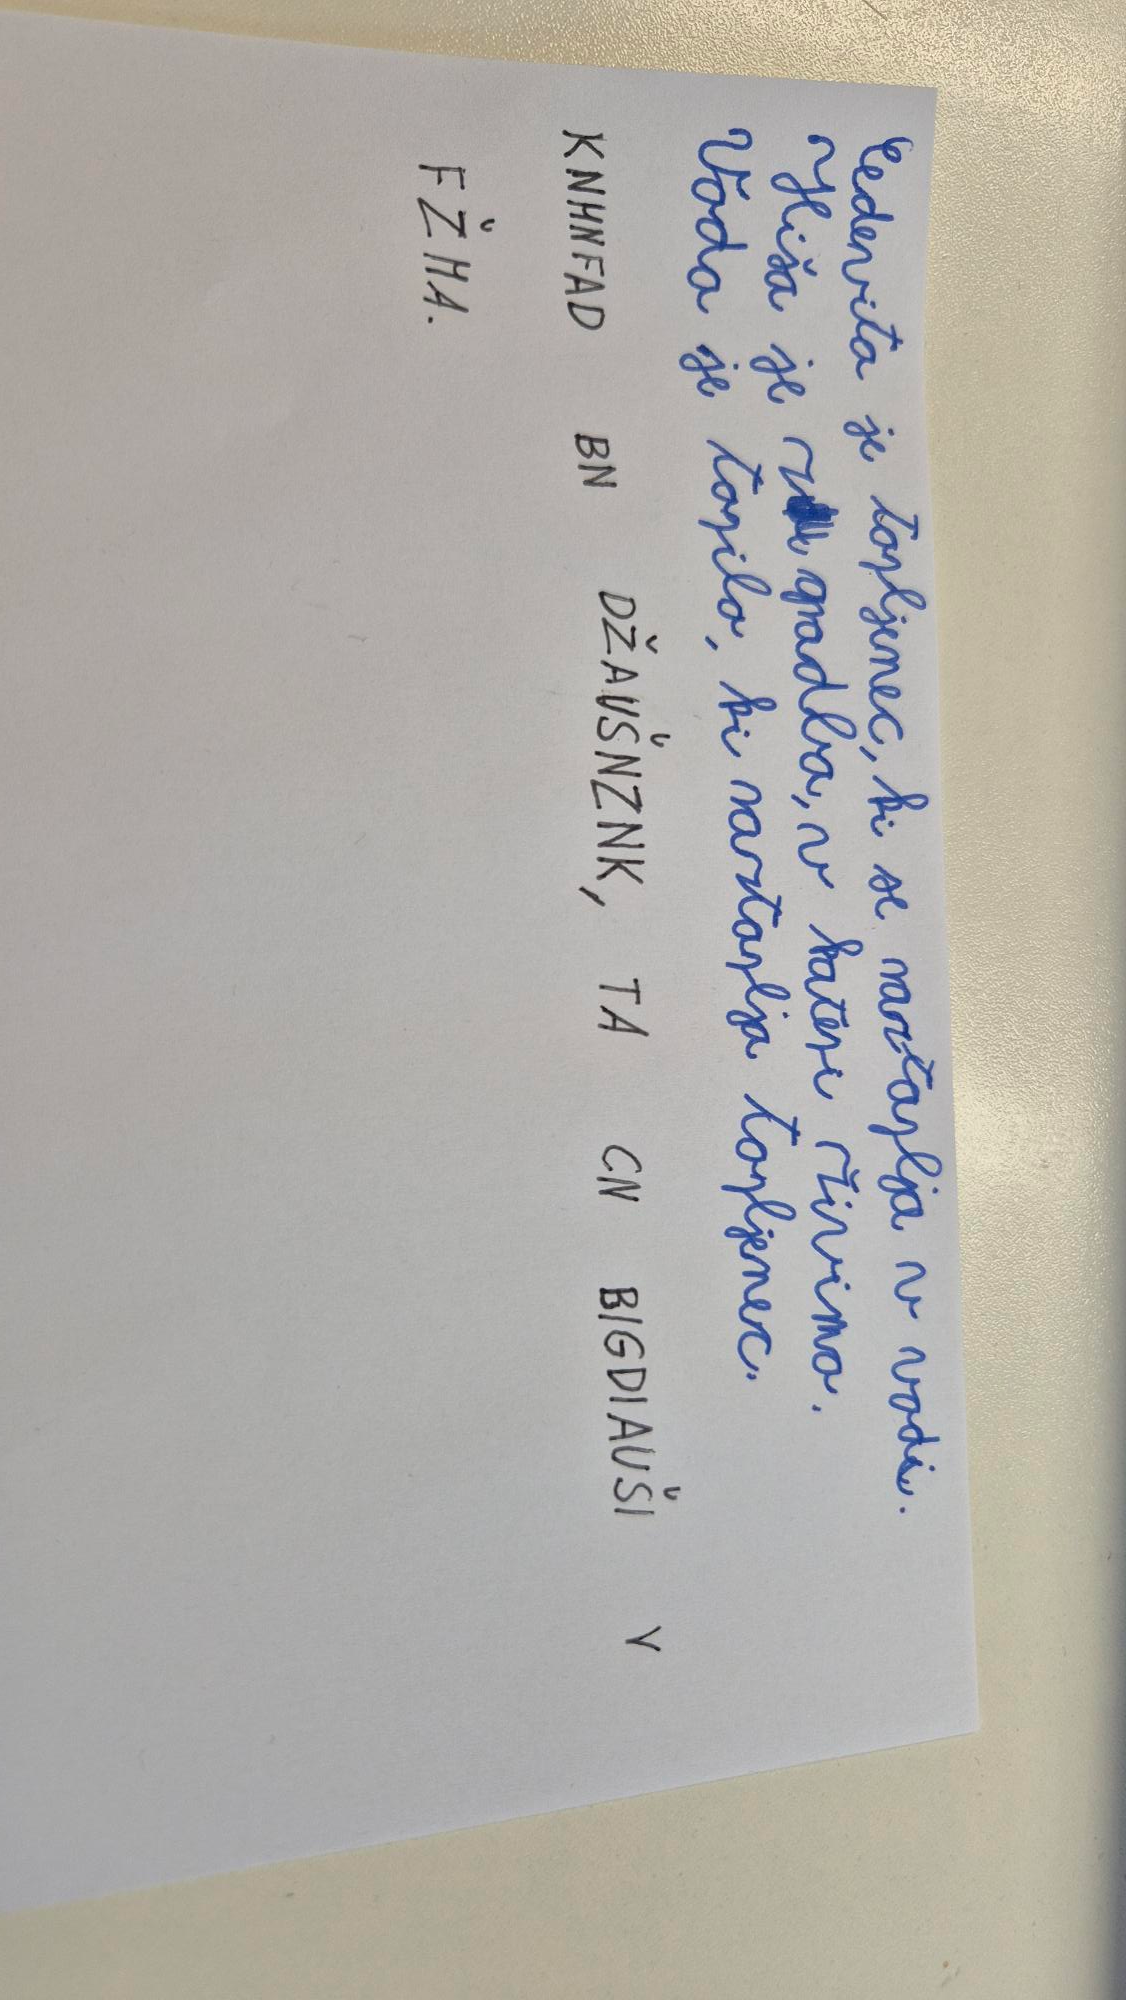 Cedevita je topljenec, ki se raztaplja v vodi.
Hiša je zgradba, v kateri živimo.
Voda je topilo, ki raztaplja topljenec.
KNHNFAD BN DŽAUŠNZNK, TA CN BIGDIAUŠI V
FŽHA.